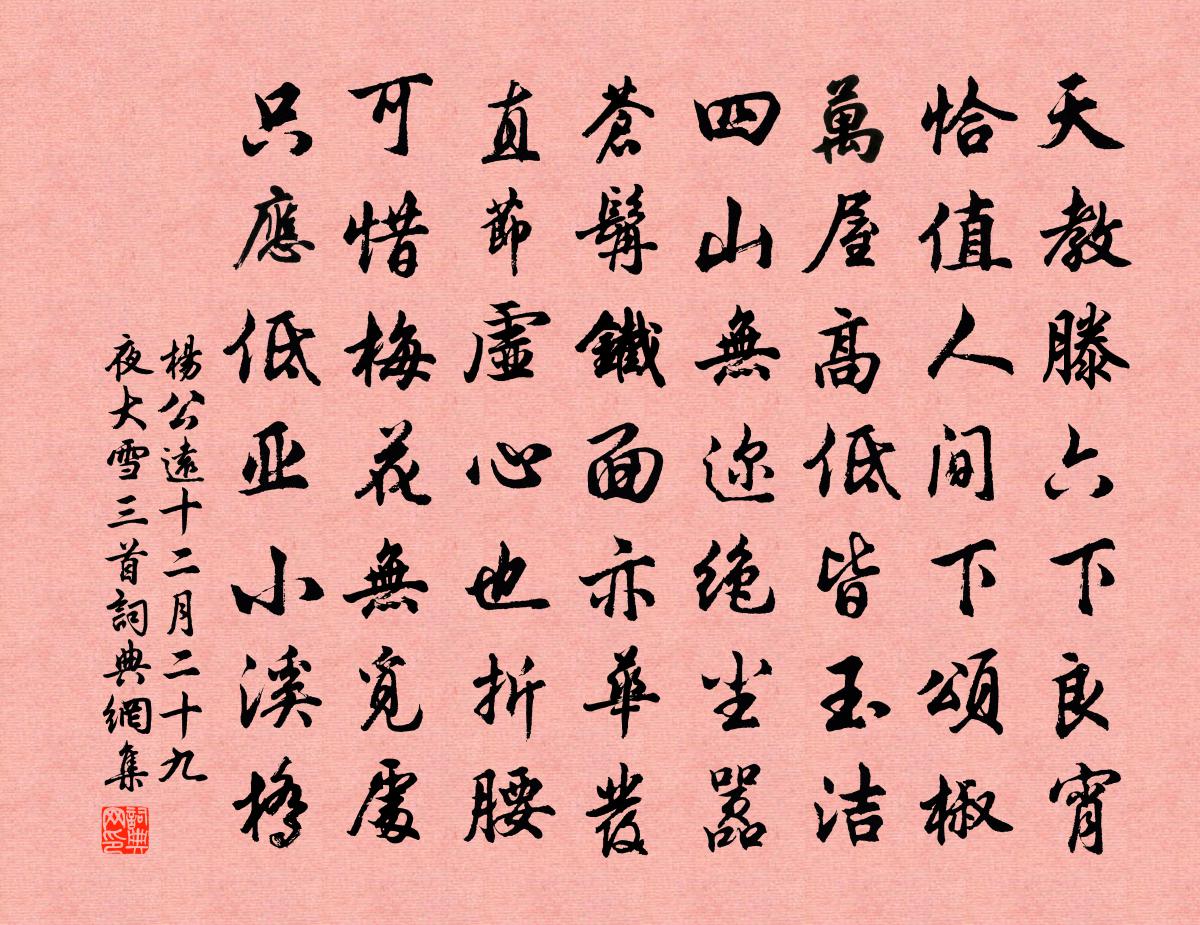 天教滕六下良宵
恰值人间下頌椒
萬屋高低皆玉洁
四山無迩绝尘嚣
蒼髯鐵面亦華發
直節虛心也折腰
可惜梅花無覓處
只應低亚小溪橋
楊公遠十二月二十九
夜大雪三首詞典網集
詞典網印